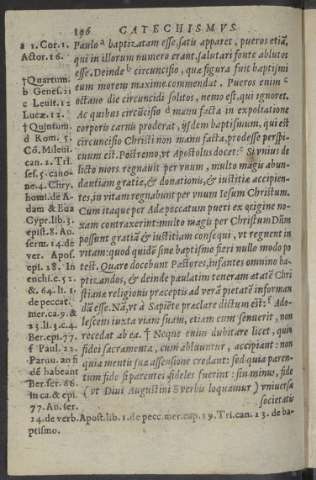 196 CATECHISMVS
a 1. Cor. 1.
Actor. 16.
† Quartum.
b Genes. 21
c Leuit. 12
Luc. 12.
† Quintum.
d Rom. 5.
Cō. Mileui.
can. 2. Tri.
ses. 5. cano-
ne. 4. Chry.
homi. de A-
dam & Eua
Gypr. lib. 3.
epist. 8. Au.
serm. 14. de
ver. Apos.
epi. 28. In
enchi. c. 52.
&. 64. li. 1.
de peccat.
mer. ca. 9. &
23. li. 3. c. 4.
Ber. epi. 77.
f Paul. 23.
Paruu. an fi
dē habeant
Ber. ser. 66.
In ca. & epi
77. Au. ser.
Paulo a baptizatam esse. satis apparet, pueros etiā,
qui in illorum numero erant, salutari fonte ablutos
esse. Deinde b circuncisio, quæ figura fuit baptismi
eum morem maxime commendat, Pueros enim c
octauo die circuncidi solitos, nemo est, qui ignoret.
Ac quibus circūcisio d manu facta in expoliatione
corporis carnis proderat, ijsdem baptismum, qui est
circuncisio Christi non manu facta, prodesse perspi-
cuum est. Postremo, vt Apostolus docet: Si vnius de
licto mors regnauit per vnum, multo magis abun-
dantiam gratiæ, & donationis, & iustitiæ accipien-
tes, in vitam regnabunt per vnum Iesum Christum.
Cum itaque per Adæ peccatum pueri ex origine no-
xam contraxerint: multo magis per Christum Dñm
possunt gratiā & iustitiam consequi, vt regnent in
vitam: quod quidē sine baptismo fieri nullo modo po
test. Quare docebunt Pastores, infantes omnino ba-
ptizandos, & deinde paulatim teneram ætatē Chri
stianæ religionis præceptis ad verā pietatē informan
dā esse. Nā, vt à Sapiēte præclare dictum est: f Ado-
lescens iuxta viam suam, etiam cum senuerit, non
recedet ab ea. † Neque enim dubitare licet, quin
fidei sacramenta, cum abluuntur, accipiant: non
quia mentis suæ assensione credant: sed quia paren-
tum fide si parentes fideles fuerint: sin minus, fide
(vt Diui Augustini g verbis loquamur) vniuersæ
societatis
24. de verb. Apost. lib. 1. de pecc. mer. cap. 19. Tri. can. 13. de ba-
ptismo.